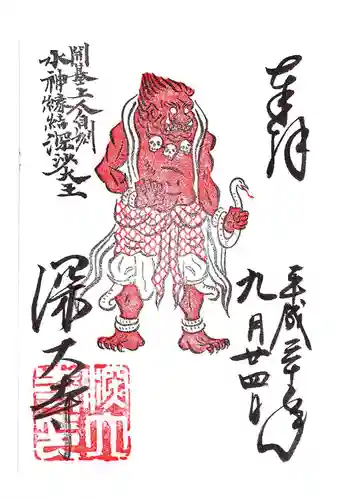 奉拝
平成三十年
九月廿四日
開基上人自刻
水神縁結深沙大王
深大寺